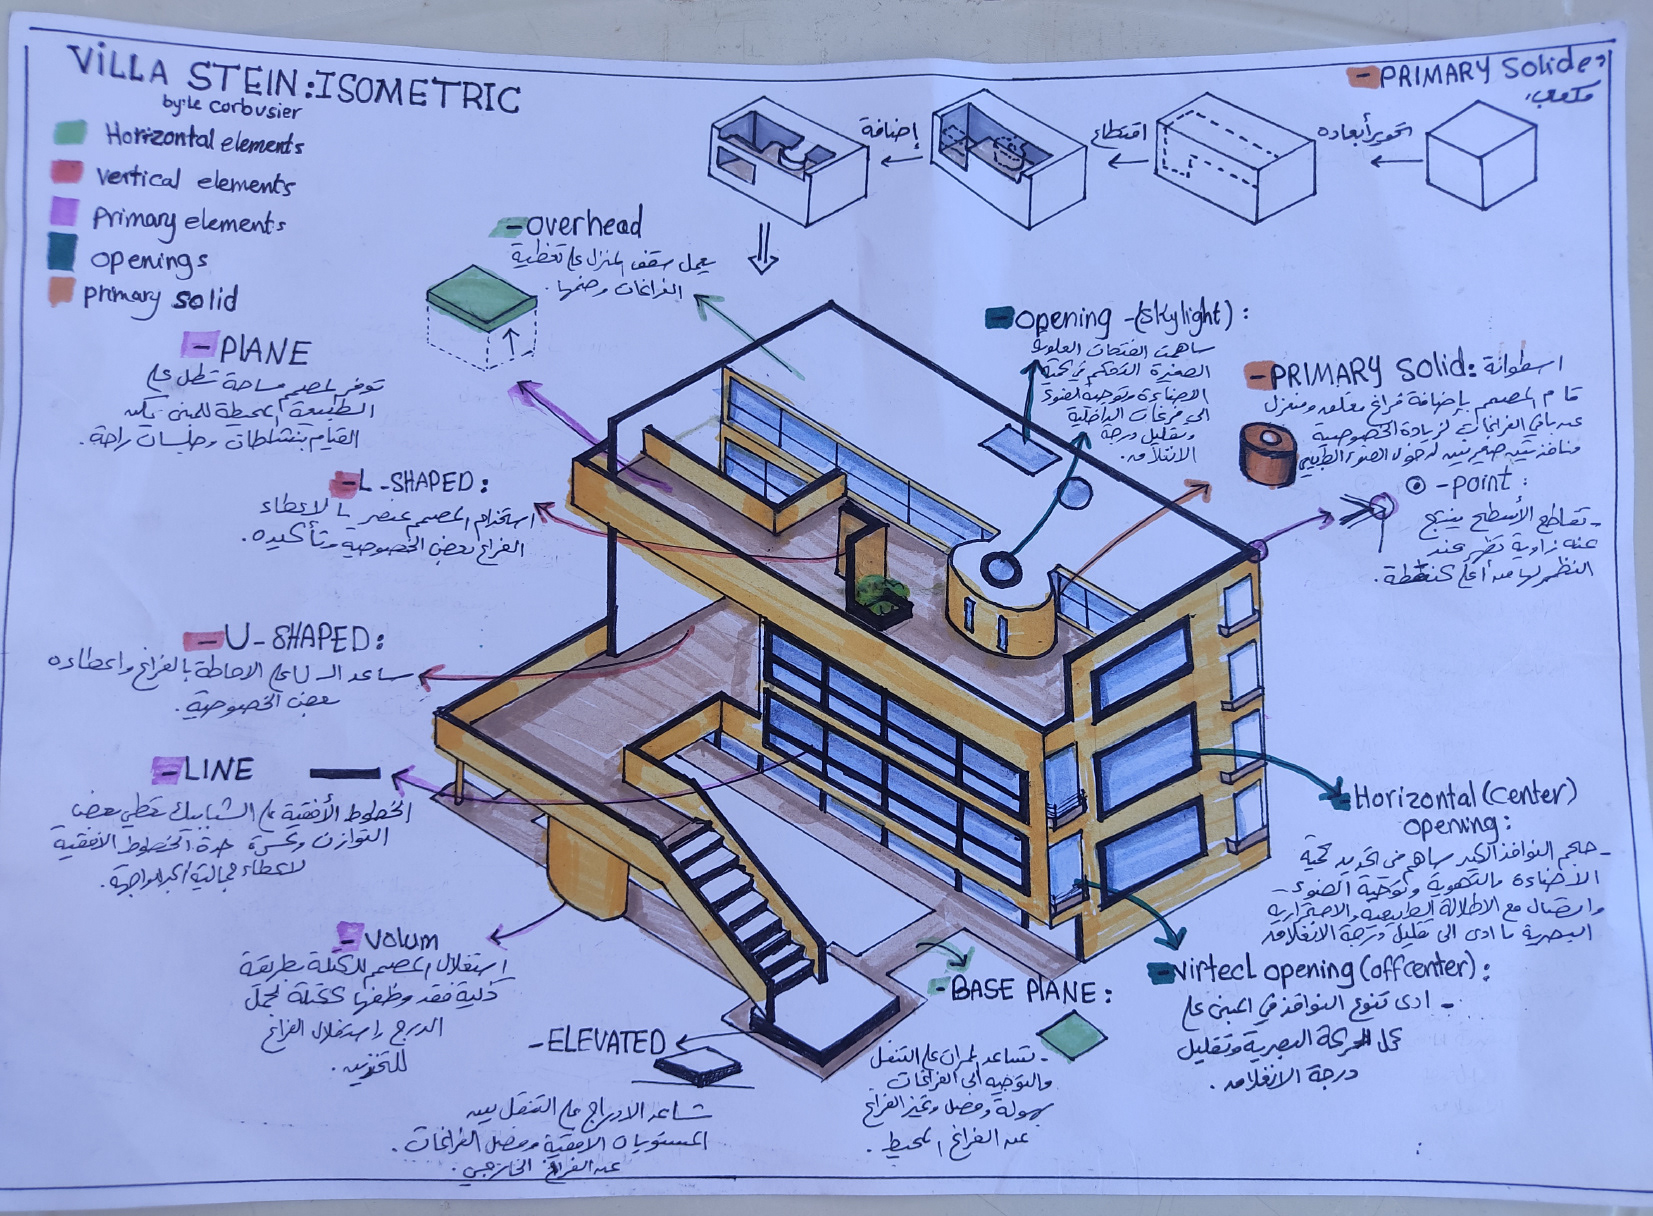 VILLA STEIN:ISOMETRIC
by:le corbusier
Horizontal elements
vertical elements
Primary elements
openings
primary solid
- PRIMARY Solide:
مكعب:
تحوير أبعاده
اقتطاع
إضافة
- overhead
يعمل سقف المنزل على تغطية
الفراغات وضمها.
- PLANE
توفر المصمم مساحة تطل على
الطبيعية المحيطة للمبنى يمكن
القيام بنشاطات وجلسات راحة.
- L-SHAPED:
استخدام المصمم عنصر يا لاعطاء
الفراغ بعض الخصوصية وتأكيده.
- U-SHAPED:
ساعد ال U على الاحاطة بالفراغ واعطاءه
بعض الخصوصية.
- LINE
الخطوط الأفقية على الشبابيك تعطي بعض
التوازن وكسرة حدة الخطوط الافقية
لاعطاء جمالية أكبر للواجهة.
- Volum
استغلال المصمم الكتلة بطريقة
ذكية فقد وظفها ككتلة لحمل
الدرج واستغلال الفراغ
للتخزين.
- ELEVATED
تساعد الادراج على التنقل بين
المستويات الافقية وفصل الفراغات
عن الفراغ الخارجي.
- BASE PLANE:
- تساعد الممرات على التنقل
والتوجيه الى الفراغات
بسهولة وفصل وتميز الفراغ
عن الفراغ المحيط.
- opening -(skylight):
ساهمت الفتحات العلوية
الصغيرة التحكم في كمية
الاضاءة وتوجيه الضوء
الى فرغات الداخلية
وتقليل درجة
الانغلاق.
- PRIMARY Solid: اسطوانة
قام المصمم بإضافة فراغ مغلق ومنعزل
عن باقي الفراغات لزيادة الخصوصية
ونافذتين صغيرتين لدخول الضوء الطبيعي
- point:
- تقاطع الأسطح ينتج
عنه زاوية تظهر عند
النظر لها من أعلى كنقطة.
- Horizontal (center)
opening:
- حجم النوافذ الكبير ساهم في تحديد كمية
الأضاءة والتهوية وتوجية الضوء
واتصال مع الاطلالة الطبيعية والاستمرارية
البصرية ما ادى الى تقليل درجة الانغلاق
- virtecl opening (offcenter):
- ادى تنوع النوافذ في المبنى على
الحركة البصرية وتقليل
درجة الانغلاق.